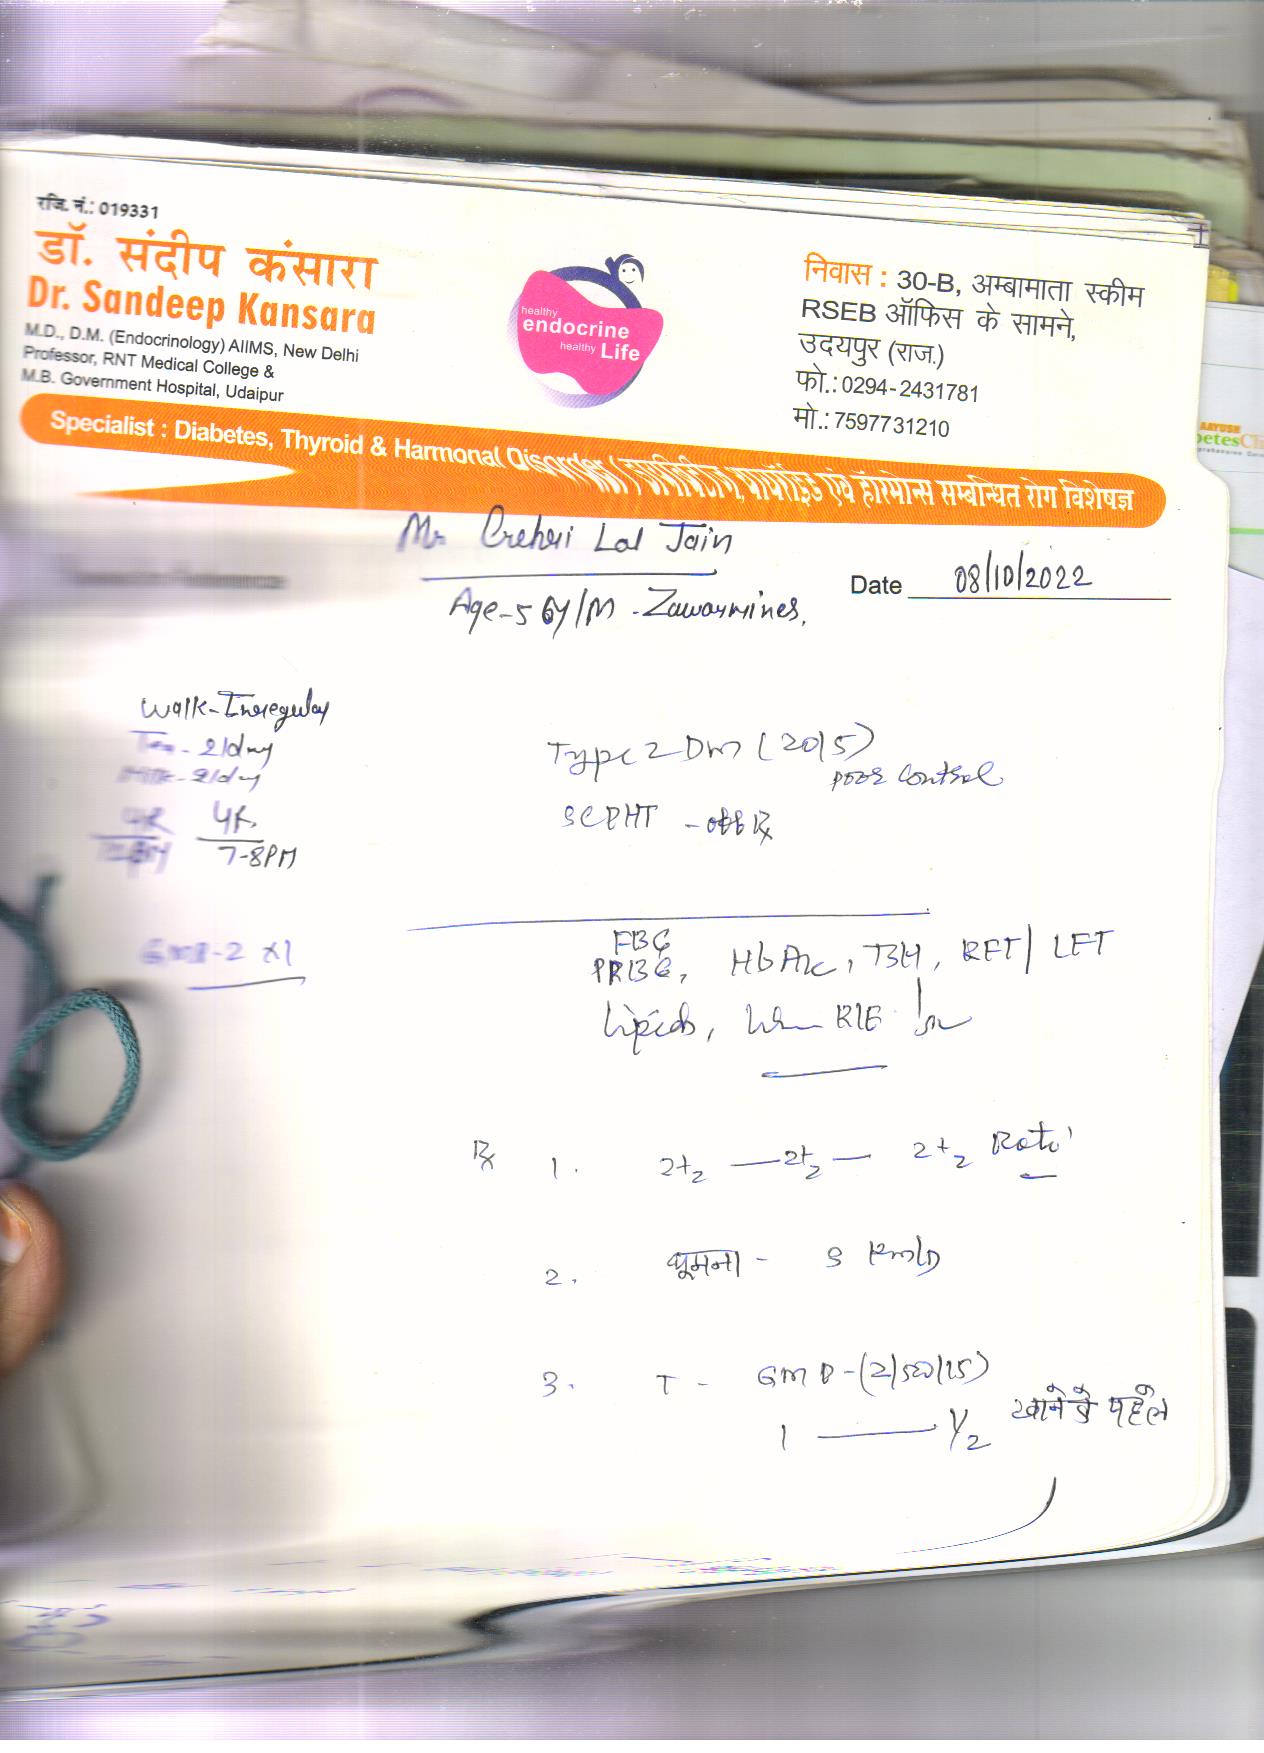 रजि. नं.: 019331
डॉ. संदीप कंसारा
Dr. Sandeep Kansara
M.D., D.M. (Endocrinology) AIIMS, New Delhi
Professor, RNT Medical College &
M.B. Government Hospital, Udaipur
healthy
endocrine
healthy Life
निवास : 30-B, अम्बामाता स्कीम
RSEB ऑफिस के सामने,
उदयपुर (राज.)
फो.: 0294-2431781
मो.: 7597731210
AAYUSH
Specialist : Diabetes, Thyroid & Harmonal Disorder / डायबिटीज, थायरॉइड एवं हॉरमोन्स सम्बन्धित रोग विशेषज्ञ
Mr Lal Jain
Date 08/10/2022
Age-56y/M - Zawarmines,
Walk-Irregular
Tea - 2/day
Milk - 2/day
4R 4R
7-8PM
Type 2 DM (2015)
poor control
- off Rx
GMP-2 x1
FBG
PPBG, HbA1c, TSH, RFT/LFT
Lipids, R/E
Rx
1. 2+2 — 2+2 — 2+2 Roti
2. घूमना - 5 Km/D
3. T - GMP-(2/500/15)
1 — 1/2 खाने से पहले